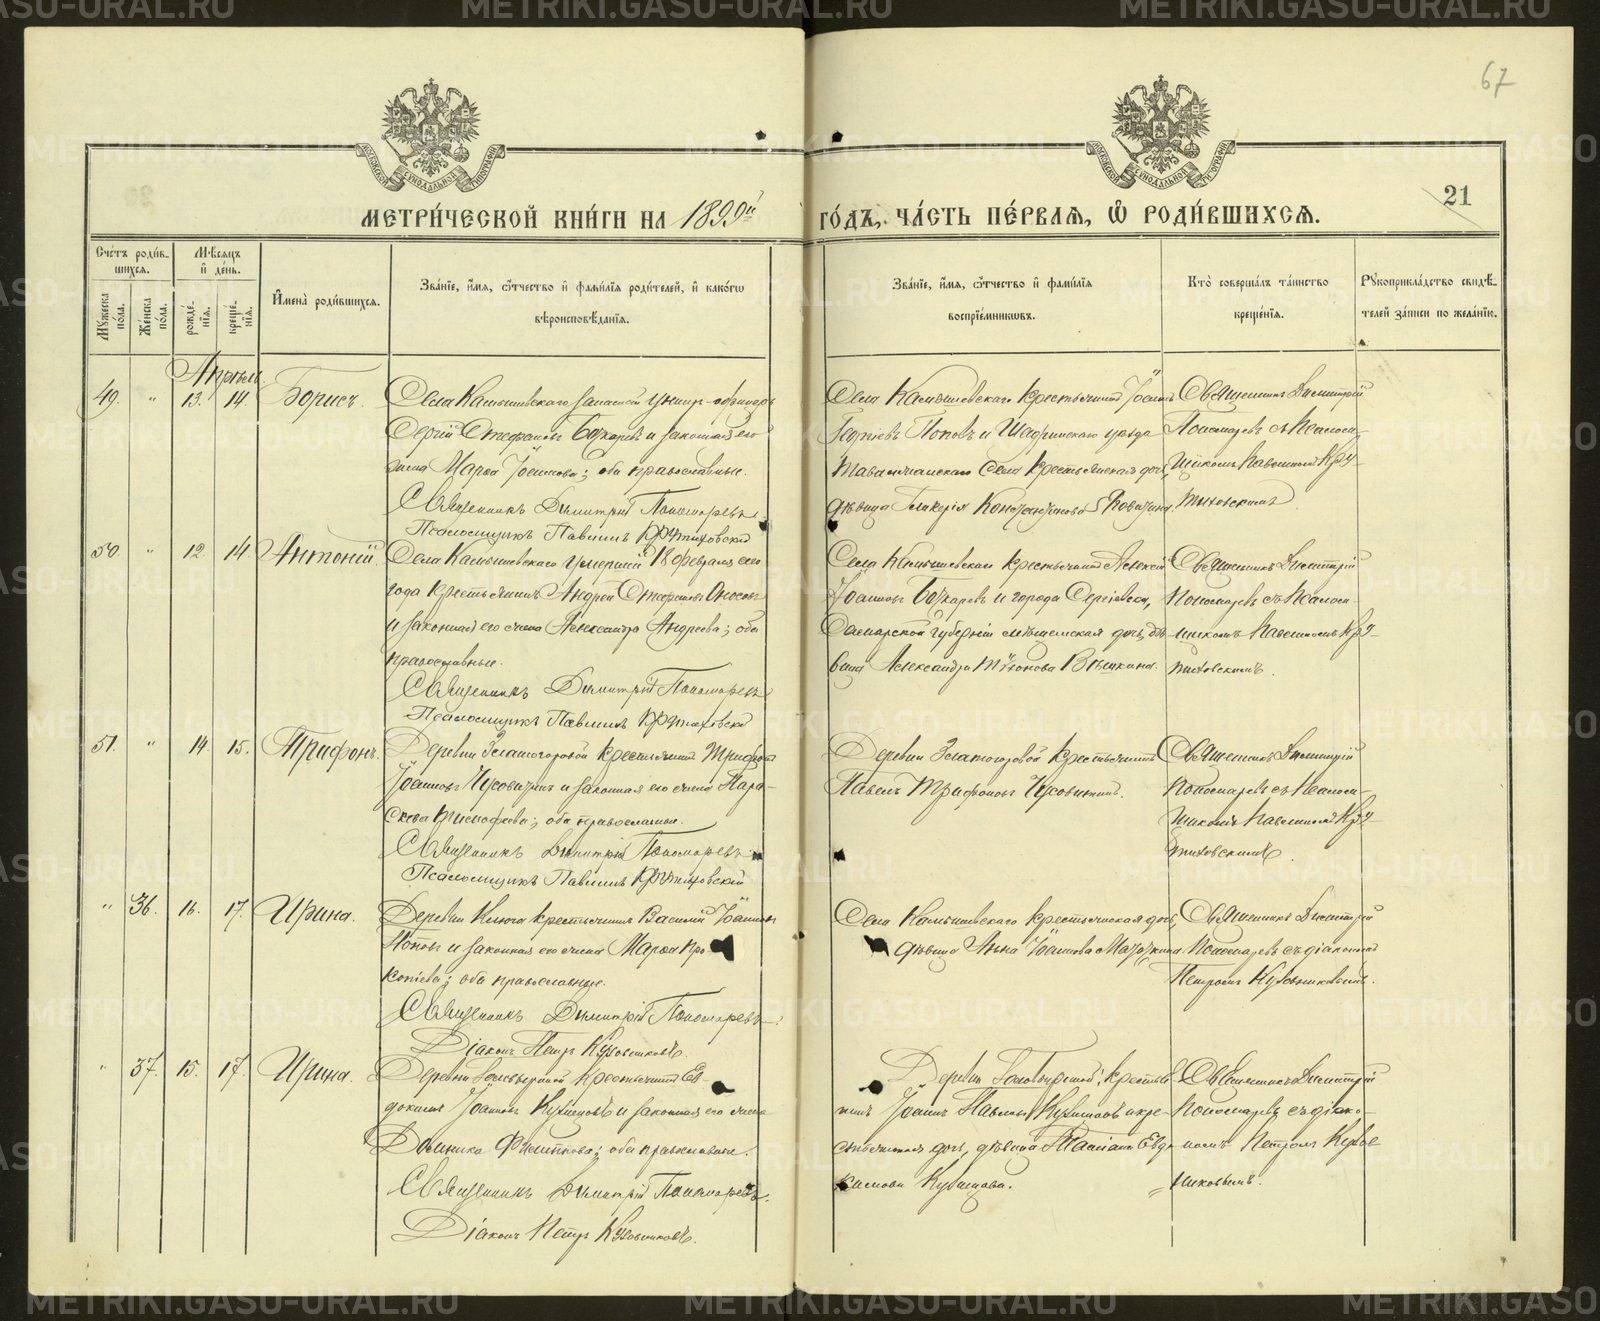 METRIKI.GASU-URAL.RU
67
МОСКОВСКОЙ СѴНОДАЛЬНОЙ ТИПОГРАФІИ
МОСКОВСКОЙ СѴНОДАЛЬНОЙ ТИПОГРАФІИ
21
МЕТРИ́ЧЕСКОЙ КНИ́ГИ НА 1899й
ГО́ДЪ, ЧА́СТЬ ПЕ́РВАѦ, Ѡ РОДИ́ВШИХСѦ.
Сче́тъ роди́в-
шихсѧ.
Мѣ́сѧцъ
и҆ де́нь.
И҆мена̀ роди́вшихсѧ.
Зва́нїе, и҆́мѧ, ѻ҆́тчество и҆ фами́лїѧ роди́телей, и҆ како́гѡ
вѣроисповѣ́данїѧ.
Зва́нїе, и҆́мѧ, ѻ҆́тчество и҆ фами́лїѧ
воспрїе́мниковъ.
Кто̀ соверша́лъ та́инство
креще́нїѧ.
Рꙋкоприкла́дство свидѣ́-
телей за́писи по жела́нїю.
Мꙋ́жеска по́ла.
Же́нска по́ла.
рожде́-нїѧ.
креще́-нїѧ.
Апрѣль
49. " 13. 14. Борисъ.
Села Камышевскаго запасный унтер-офицеръ
Сергій Стефановъ Бочкаревъ и законная его
жена Марѳа Іоаннова; оба православные.
Священникъ Димитрій Пономаревъ.
Псаломщикъ Павлинъ Крутиховскій
Села Камышевскаго крестьянинъ Іоаннъ
Георгіевъ Поповъ и Шадринскаго уѣзда
села крестьянская дочь,
дѣвица Гликерія
Священникъ Димитрій
Пономаревъ съ псалом-
щикомъ Павлиномъ Кру-
тиховскимъ.
50. " 12. 14. Антоній.
Села Камышевскаго умершій 18 февраля сего
года крестьянинъ Андрей Стефановъ
и законная его жена Александра Андреева; оба
православные.
Священникъ Димитрій Пономаревъ
Псаломщикъ Павлинъ Крутиховскій
Села Камышевскаго крестьянинъ Алексій
Іоанновъ Бочкаревъ и города Сергіевска,
Самарской губерніи мѣщанская дочь, дѣ-
вица Александра
Священникъ Димитрій
Пономаревъ съ псалом-
щикомъ Павлиномъ Кру-
тиховскимъ.
51. " 14. 15. Трифонъ.
Деревни Златогоровой крестьянинъ Трифонъ
Іоанновъ Чусовитинъ и законная его жена Пара-
скева Тимофеева; оба православные.
Священникъ Димитрій Пономаревъ
Псаломщикъ Павлинъ Крутиховскій
Деревни Златогоровой крестьянинъ
Павелъ Трифоновъ Чусовитинъ.
Священникъ Димитрій
Пономаревъ съ псалом-
щикомъ Павлиномъ Кру-
тиховскимъ.
" 36. 16. 17. Ирина.
Деревни Ключа крестьянинъ Василій Іоанновъ
Поповъ и законная его жена Марѳа Про-
копіева; оба православные.
Священникъ Димитрій Пономаревъ.
Діаконъ Петръ Кузовниковъ.
Села Камышевскаго крестьянская дочь,
дѣвица Анна Іоаннова
Священникъ Димитрій
Пономаревъ съ діакономъ
Петромъ Кузовниковымъ.
" 37. 15. 17. Ирина.
Деревни крестьянинъ Ев-
докимъ Іоанновъ Кузнецовъ и законная его жена
Домника Филиппова; оба православные.
Священникъ Димитрій Пономаревъ.
Діаконъ Петръ Кузовниковъ.
Деревни крестья-
нинъ Іоаннъ Павловъ Кузнецовъ и кре-
стьянская дочь, дѣвица Евдо-
кимова Кузнецова.
Священникъ Димитрій
Пономаревъ съ діако-
номъ Петромъ Кузов-
никовымъ.